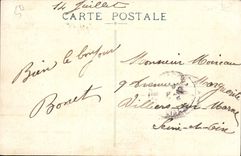 14 Juillet
CARTE POSTALE
Bien le bonjour
Bonet
Monsieur Moireau
9 Avenue Marguerite
Villiers sur Marne
Seine-et-Oise